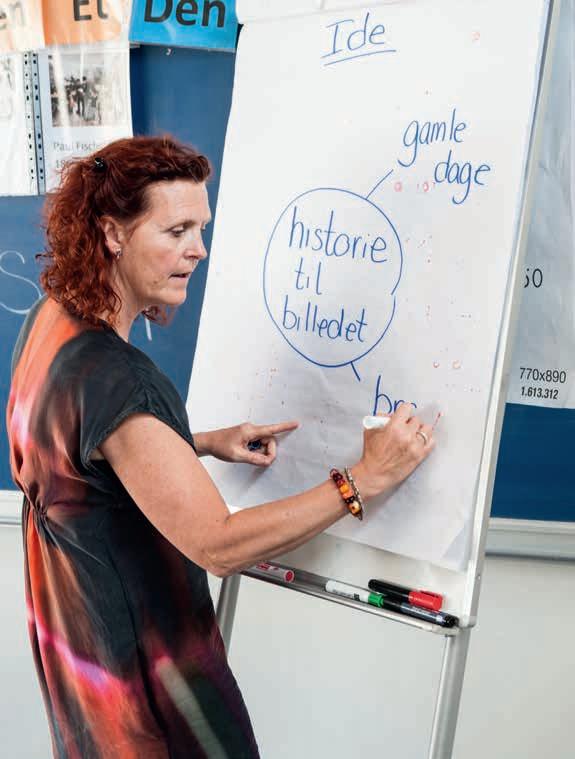 Et
Den
Paul Fisch
Ide
gamle
dage
historie
til
billedet
br
50
770x890
1.613.312